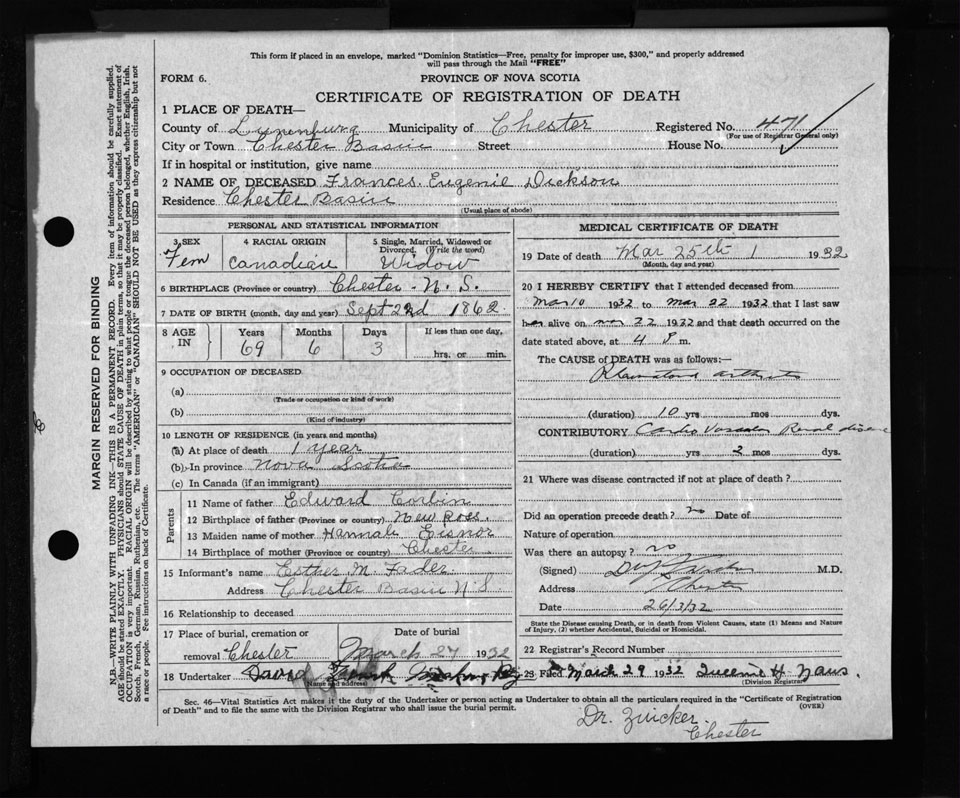 This form if placed in an envelope, marked "Dominion Statistics—Free, penalty for improper use, $300," and properly addressed
will pass through the Mail "FREE"
FORM 6.
PROVINCE OF NOVA SCOTIA
CERTIFICATE OF REGISTRATION OF DEATH
1 PLACE OF DEATH—
County of Lunenburg Municipality of Chester Registered No. 471
(For use of Registrar General only)
City or Town Chester Basin Street House No.
If in hospital or institution, give name
2 NAME OF DECEASED Frances Eugenie Dickson
Residence Chester Basin
(Usual place of abode)
PERSONAL AND STATISTICAL INFORMATION
3 SEX 4 RACIAL ORIGIN 5 Single, Married, Widowed or
Divorced. (Write the word)
Fem Canadian Widow
6 BIRTHPLACE (Province or country) Chester - N. S.
7 DATE OF BIRTH (month, day and year) Sept 22d 1862
8 AGE IN Years Months Days If less than one day,
69 6 3 hrs. or min.
9 OCCUPATION OF DECEASED
(a)
(Trade or occupation or kind of work)
(b)
(Kind of industry)
10 LENGTH OF RESIDENCE (in years and months)
(a) At place of death 1 year
(b) In province Nova Scotia
(c) In Canada (if an immigrant)
Parents
11 Name of father Edward Corbin
12 Birthplace of father (Province or country) New Ross
13 Maiden name of mother Hannah Eisnor
14 Birthplace of mother (Province or country) Chester
15 Informant's name Esther M. Fader
Address Chester Basin N S
16 Relationship to deceased
17 Place of burial, cremation or Date of burial
removal Chester March 27 1932
18 Undertaker David
(Name and address)
MEDICAL CERTIFICATE OF DEATH
19 Date of death Mar 25th 1932
(Month, day and year)
20 I HEREBY CERTIFY that I attended deceased from
Mar 10 1932 to Mar 22 1932 that I last saw
her alive on Mar 22 1932 and that death occurred on
date stated above, at 4 P m.
The CAUSE of DEATH was as follows:—
Rheumatoid arthritis
(duration) 10 yrs mos dys.
CONTRIBUTORY Cardio Vascular Renal disease
(duration) yrs 2 mos dys.
21 Where was disease contracted if not at place of death?
Did an operation precede death? no Date of
Nature of operation
Was there an autopsy? no
(Signed) M.D.
Address Chester
Date 26/3/32
State the Disease causing Death, or in death from Violent Causes, state (1) Means and Nature
of Injury, (2) whether Accidental, Suicidal or Homicidal.
22 Registrar's Record Number
23 Filed March 29 1932
(Division Registrar)
Sec. 46—Vital Statistics Act makes it the duty of the Undertaker or person acting as Undertaker to obtain all the particulars required in the "Certificate of Registration
of Death" and to file the same with the Division Registrar who shall issue the burial permit.
(OVER)
Dr. Zwicker.
Chester
MARGIN RESERVED FOR BINDING
N.B.—WRITE PLAINLY WITH UNFADING INK—THIS IS A PERMANENT RECORD. Every item of information should be carefully supplied.
AGE should be stated EXACTLY. PHYSICIANS should STATE CAUSE OF DEATH in plain terms, so that it may be properly classified. Exact statement of
OCCUPATION is very important. RACIAL ORIGIN will be described by stating to what people or tongue the deceased person belonged, whether English, Irish,
Scotch, French, German, Russian, Ruthenian, etc. The terms "AMERICAN" or "CANADIAN" SHOULD NOT BE USED as they express citizenship but not
a race or people. See instructions on back of Certificate.